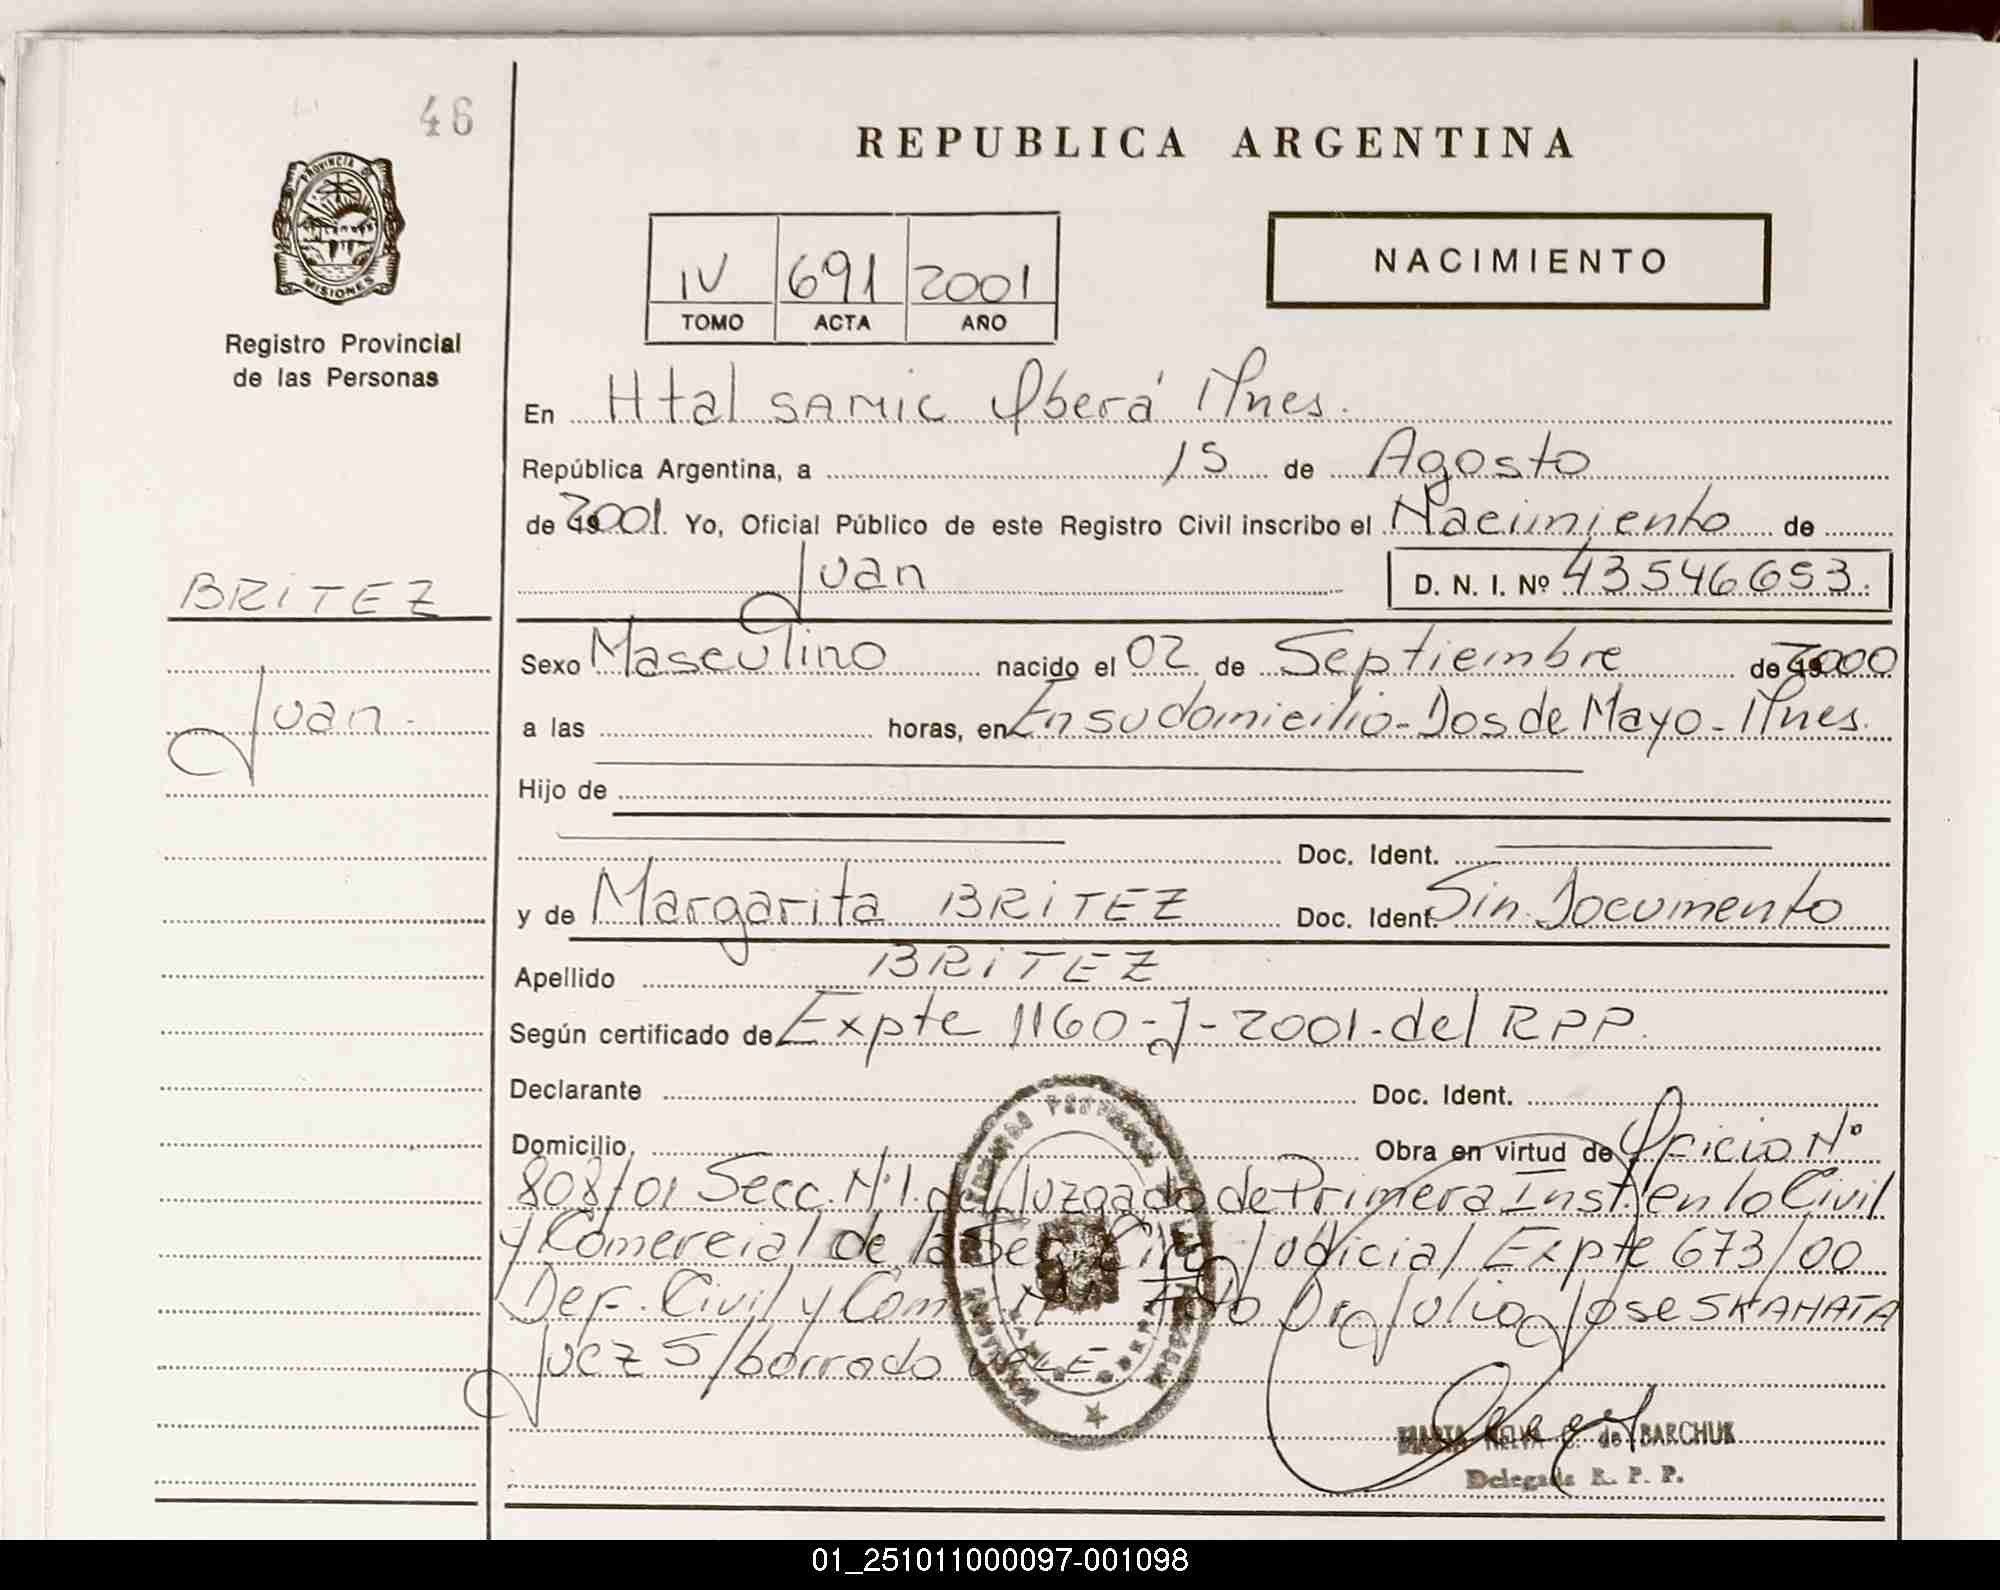 46
REPUBLICA ARGENTINA
PROVINCIA DE
MISIONES
Registro Provincial
de las Personas
IV 691 2001
TOMO ACTA AÑO
NACIMIENTO
En Htal SAMIC Oberá Mnes.
República Argentina, a 15 de Agosto
de 2001. Yo, Oficial Público de este Registro Civil inscribo el Nacimiento de
Juan D. N. I. Nº 43546653.
BRITEZ
Juan.
Sexo Masculino nacido el 02 de Septiembre de 2000
a las horas, en En su domicilio - Dos de Mayo - Mnes.
Hijo de
Doc. Ident.
y de Margarita BRITEZ Doc. Ident. Sin Documento
Apellido BRITEZ
Según certificado de Expte 1160-J-2001-del RPP.
Declarante Doc. Ident.
Domicilio Obra en virtud de Oficio Nº
808/01 Secc. Nº1. del Juzgado de Primera Inst. en lo Civil
y Comercial de la Seg. Circ. Judicial Expte 673/00
Def. Civil y Com. Fdo Dr. Julio Jose SKAHATA
Juez S/borrado VALE
MARTA NELVA C. de BARCHUK
Delegada R. P. P.
01_251011000097-001098